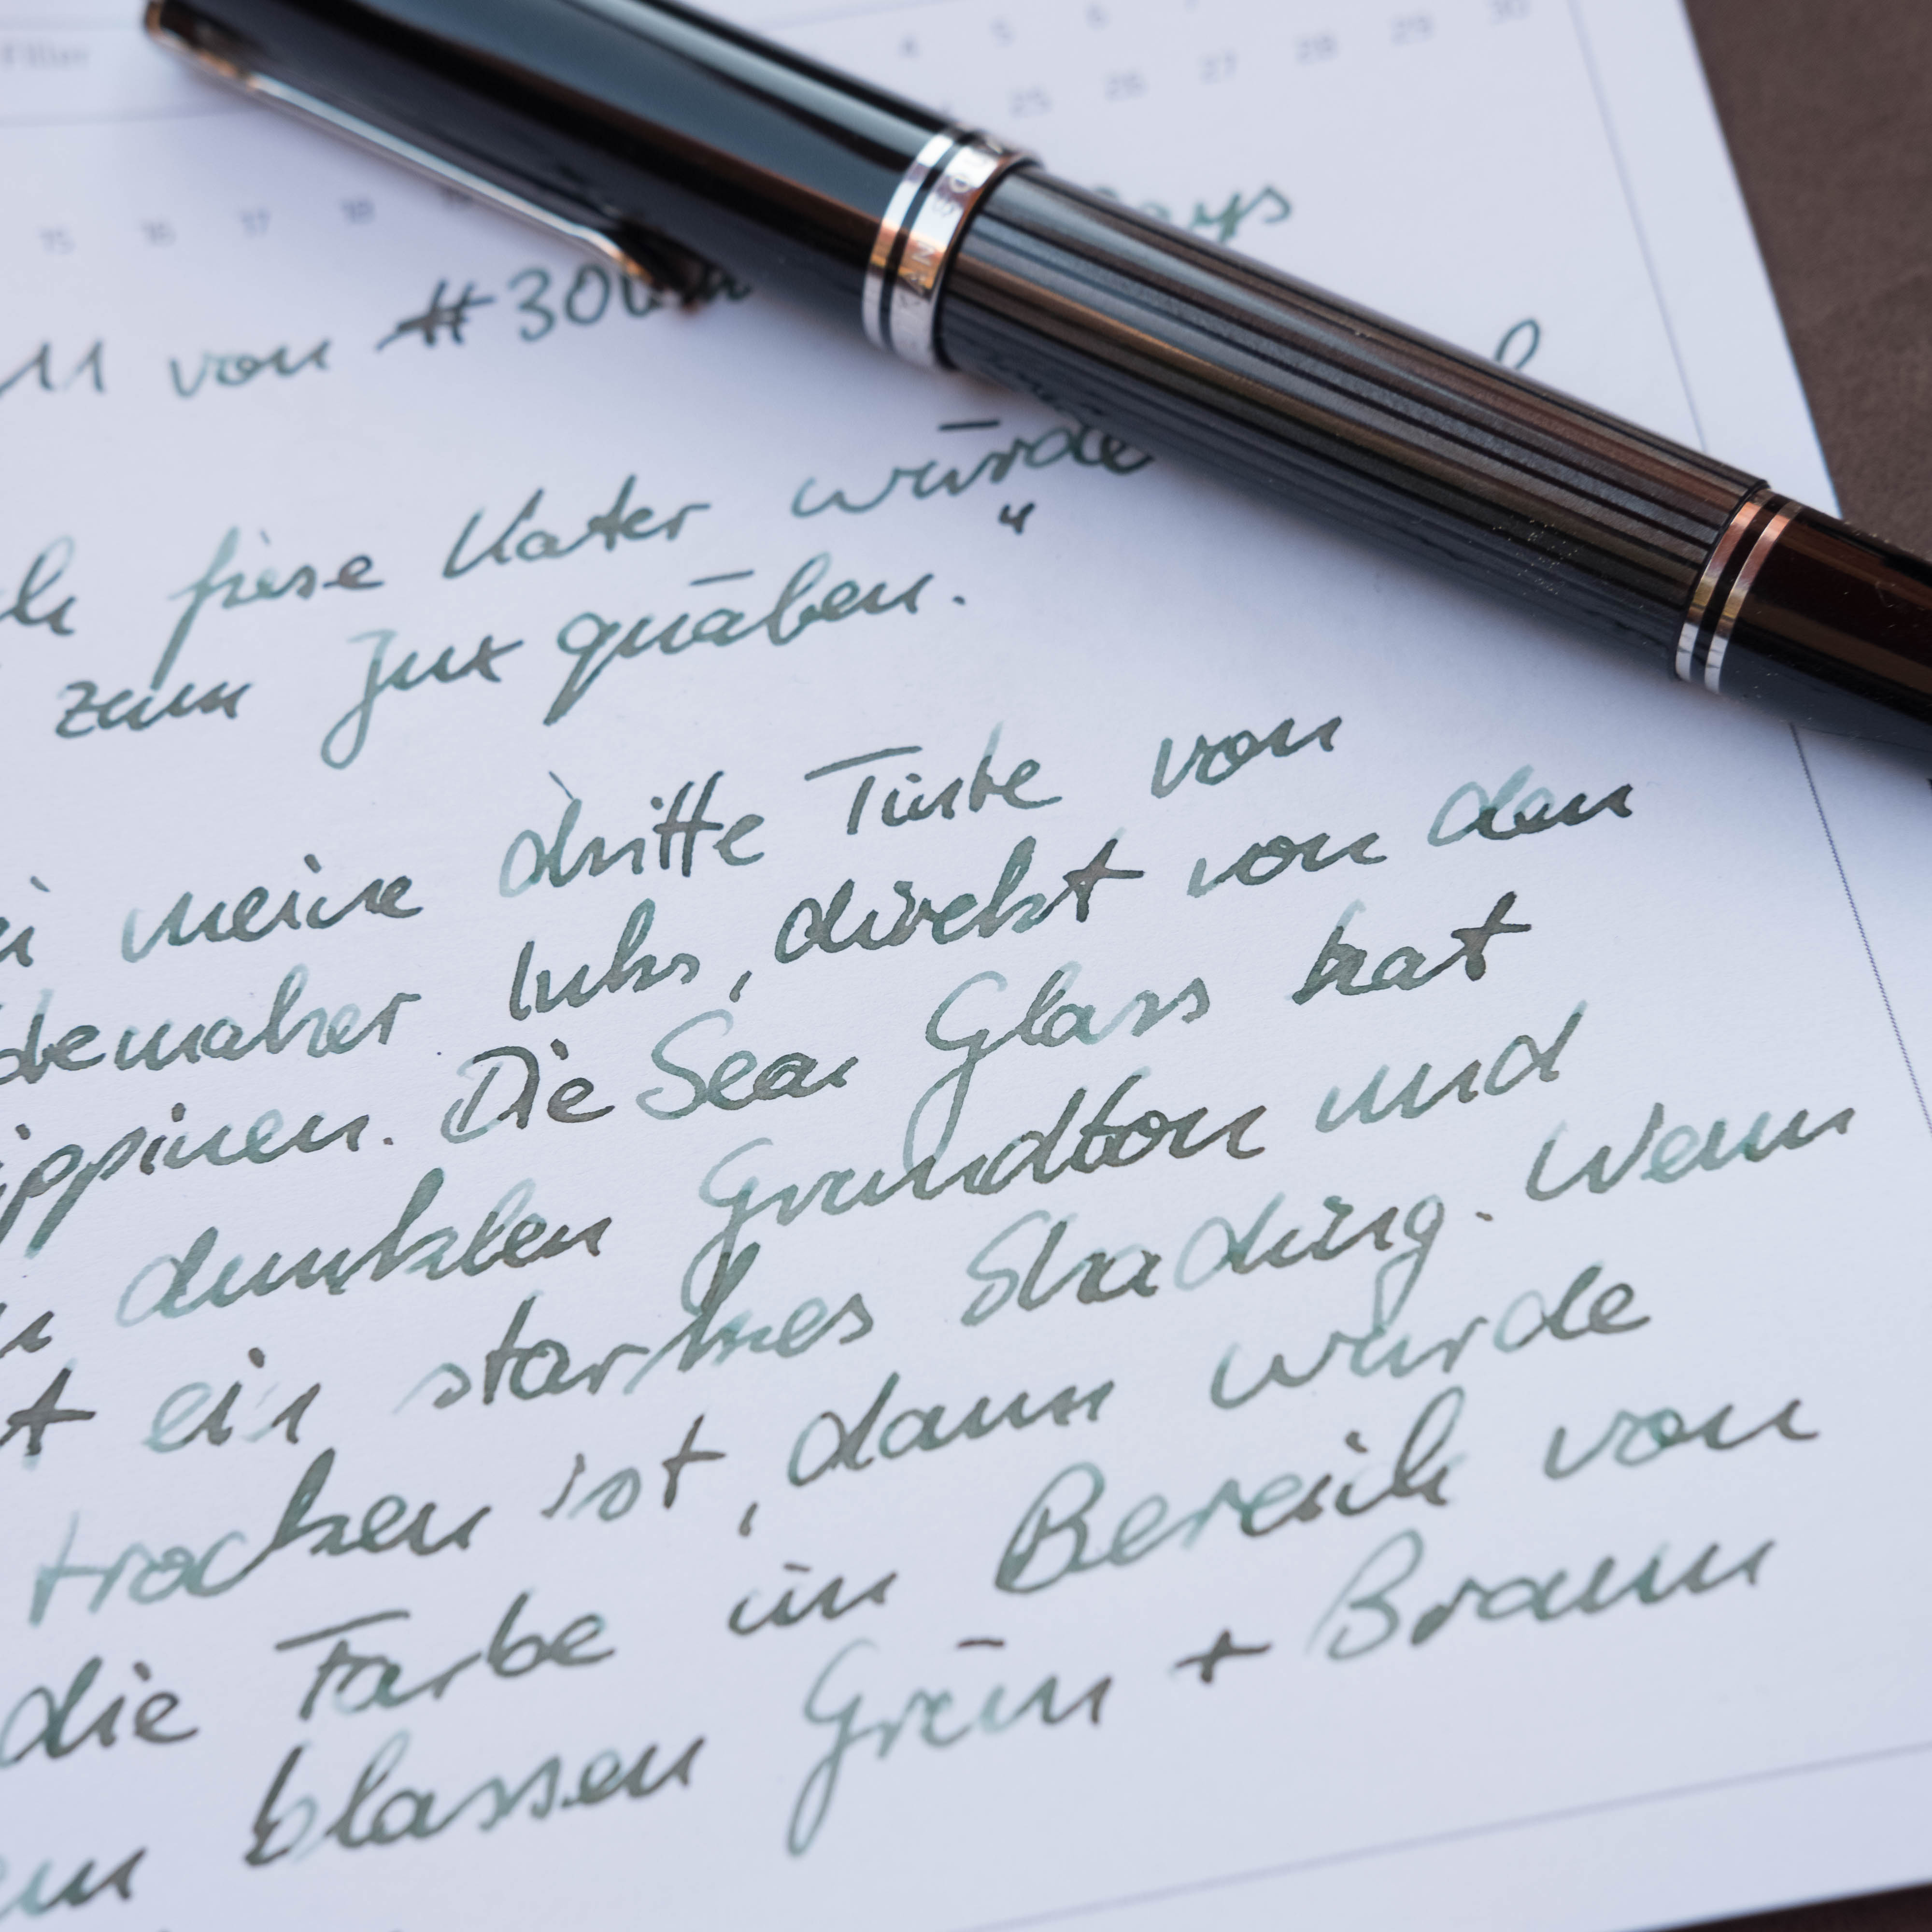 Filler 4 5 6 7 28 29 30
25 26 27
15 16 17 18
von #30
fiese Kater würde
zum Jux quäben."
meine dritte Tinte von
Inks, direkt von den
ippinen. Die Sea Glass hat
dunklen Grundton und
t ein starkes Shading. Wenn
trocken ist, dann würde
die Farbe im Bereich von
blassen Grün + Braun
SOUVERÄN